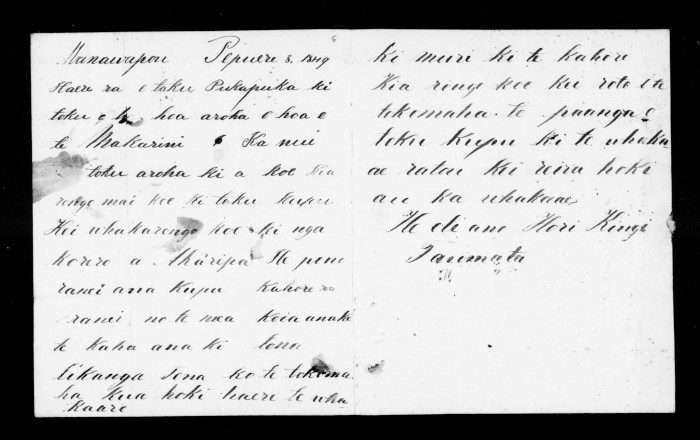 Manawapou Pepuere 8. 1849
Haere ra e taku Pukapuka ki
toku hoa aroha e hoa e
te Makarini Ka nui
toku aroha ki a koe Kia
rongo mai koe ki toku kupu
Kei whakarongo koe ki nga
korero a He pono
ranei ana Kupu Kahore ra
ranei no te mea koia anake
te kaha ana ki tona
tikanga Tena ko te tokoma
ha Kua hoki haere te wha
kaaro
ki muri ki te kahore
Kia rongo koe kei roto i te
tokomaha te paanga o
toku Kupu ki te whaka
ae ratau kei reira hoki
au ka whakaae
Hori Kingi
Taumata